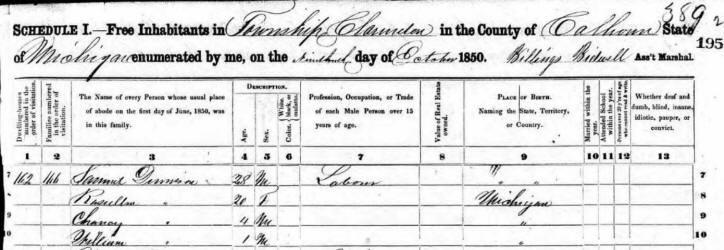 389 2
195
SCHEDULE I.—Free Inhabitants in Township Clarendon in the County of Calhoun State
of Michigan enumerated by me, on the day of October 1850. Billings Bidwell Ass't Marshal.
Dwelling-houses numbered in the order of visitation.
Families numbered in the order of visitation.
The Name of every Person whose usual place of abode on the first day of June, 1850, was in this family.
DESCRIPTION.
Age.
Sex.
Color, White, black, or mulatto.
Profession, Occupation, or Trade of each Male Person over 15 years of age.
Value of Real Estate owned.
PLACE OF BIRTH. Naming the State, Territory, or Country.
Married within the year.
Attended School within the year.
Persons over 20 y'rs of age who cannot read & write.
Whether deaf and dumb, blind, insane, idiotic, pauper, or convict.
1 2 3 4 5 6 7 8 9 10 11 12 13
7 162 166 Samuel 28 M Labour " " 7
8 " 20 F Michigan 8
9 Chancy " 4 M " 9
10 William " 1 M " 10